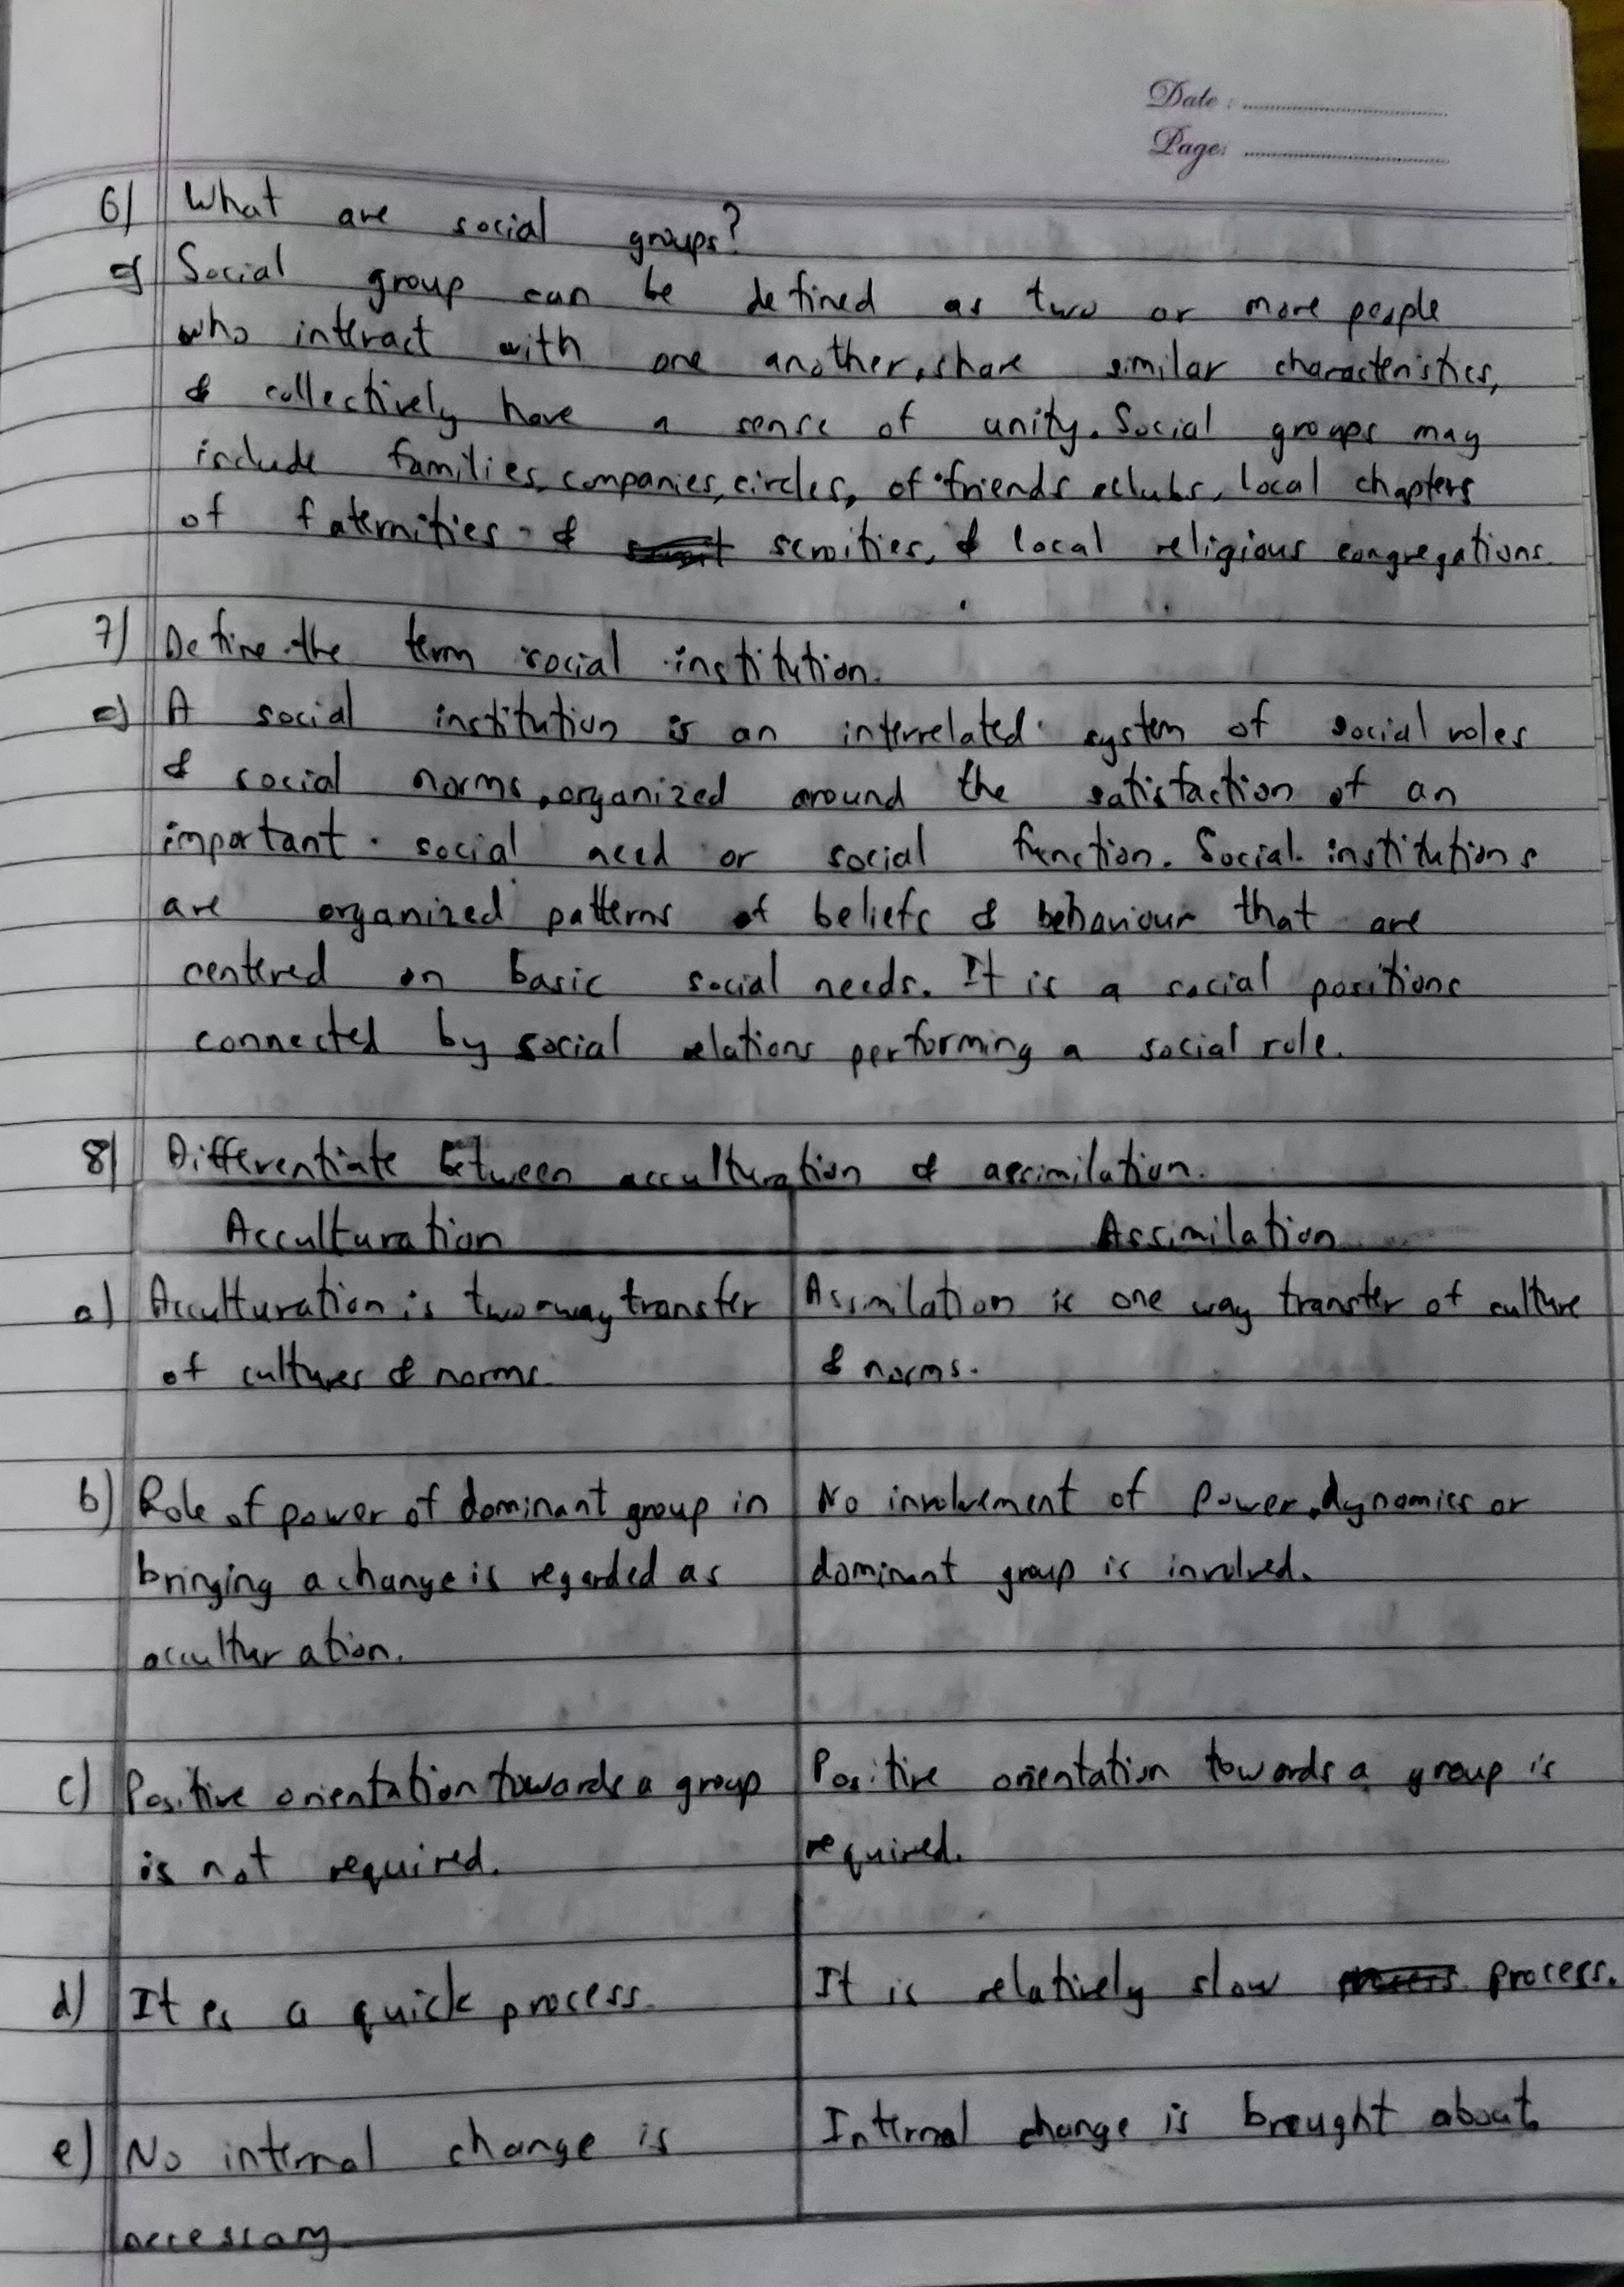 Date :
Page:
6) What are social groups?
⇒ Social group can be defined as two or more people
who interact with one another, share similar characteristics,
& collectively have a sense of unity. Social groups may
include families, companies, circles, of friends clubs, local chapters
of faternities & sororities, & local religious congregations.
7) Define the term social institution.
⇒ A social institution is an interrelated system of social roles
& social norms, organized around the satisfaction of an
important social need or social function. Social institutions
are organized patterns of beliefs & behaviour that are
centered on basic social needs. It is a social positions
connected by social relations performing a social role.
8) Differentiate between acculturation & assimilation.
Acculturation Assimilation
a) Acculturation is two-way transfer Assimilation is one way transfer of culture
of cultures & norms. & norms.
b) Role of power of dominant group in No involvement of power, dynamics or
bringing a change is regarded as dominant group is involved.
acculturation.
c) Positive orientation towards a group Positive orientation towards a group is
is not required. required.
d) It is a quick process. It is relatively slow process.
e) No internal change is Internal change is brought about.
necessary